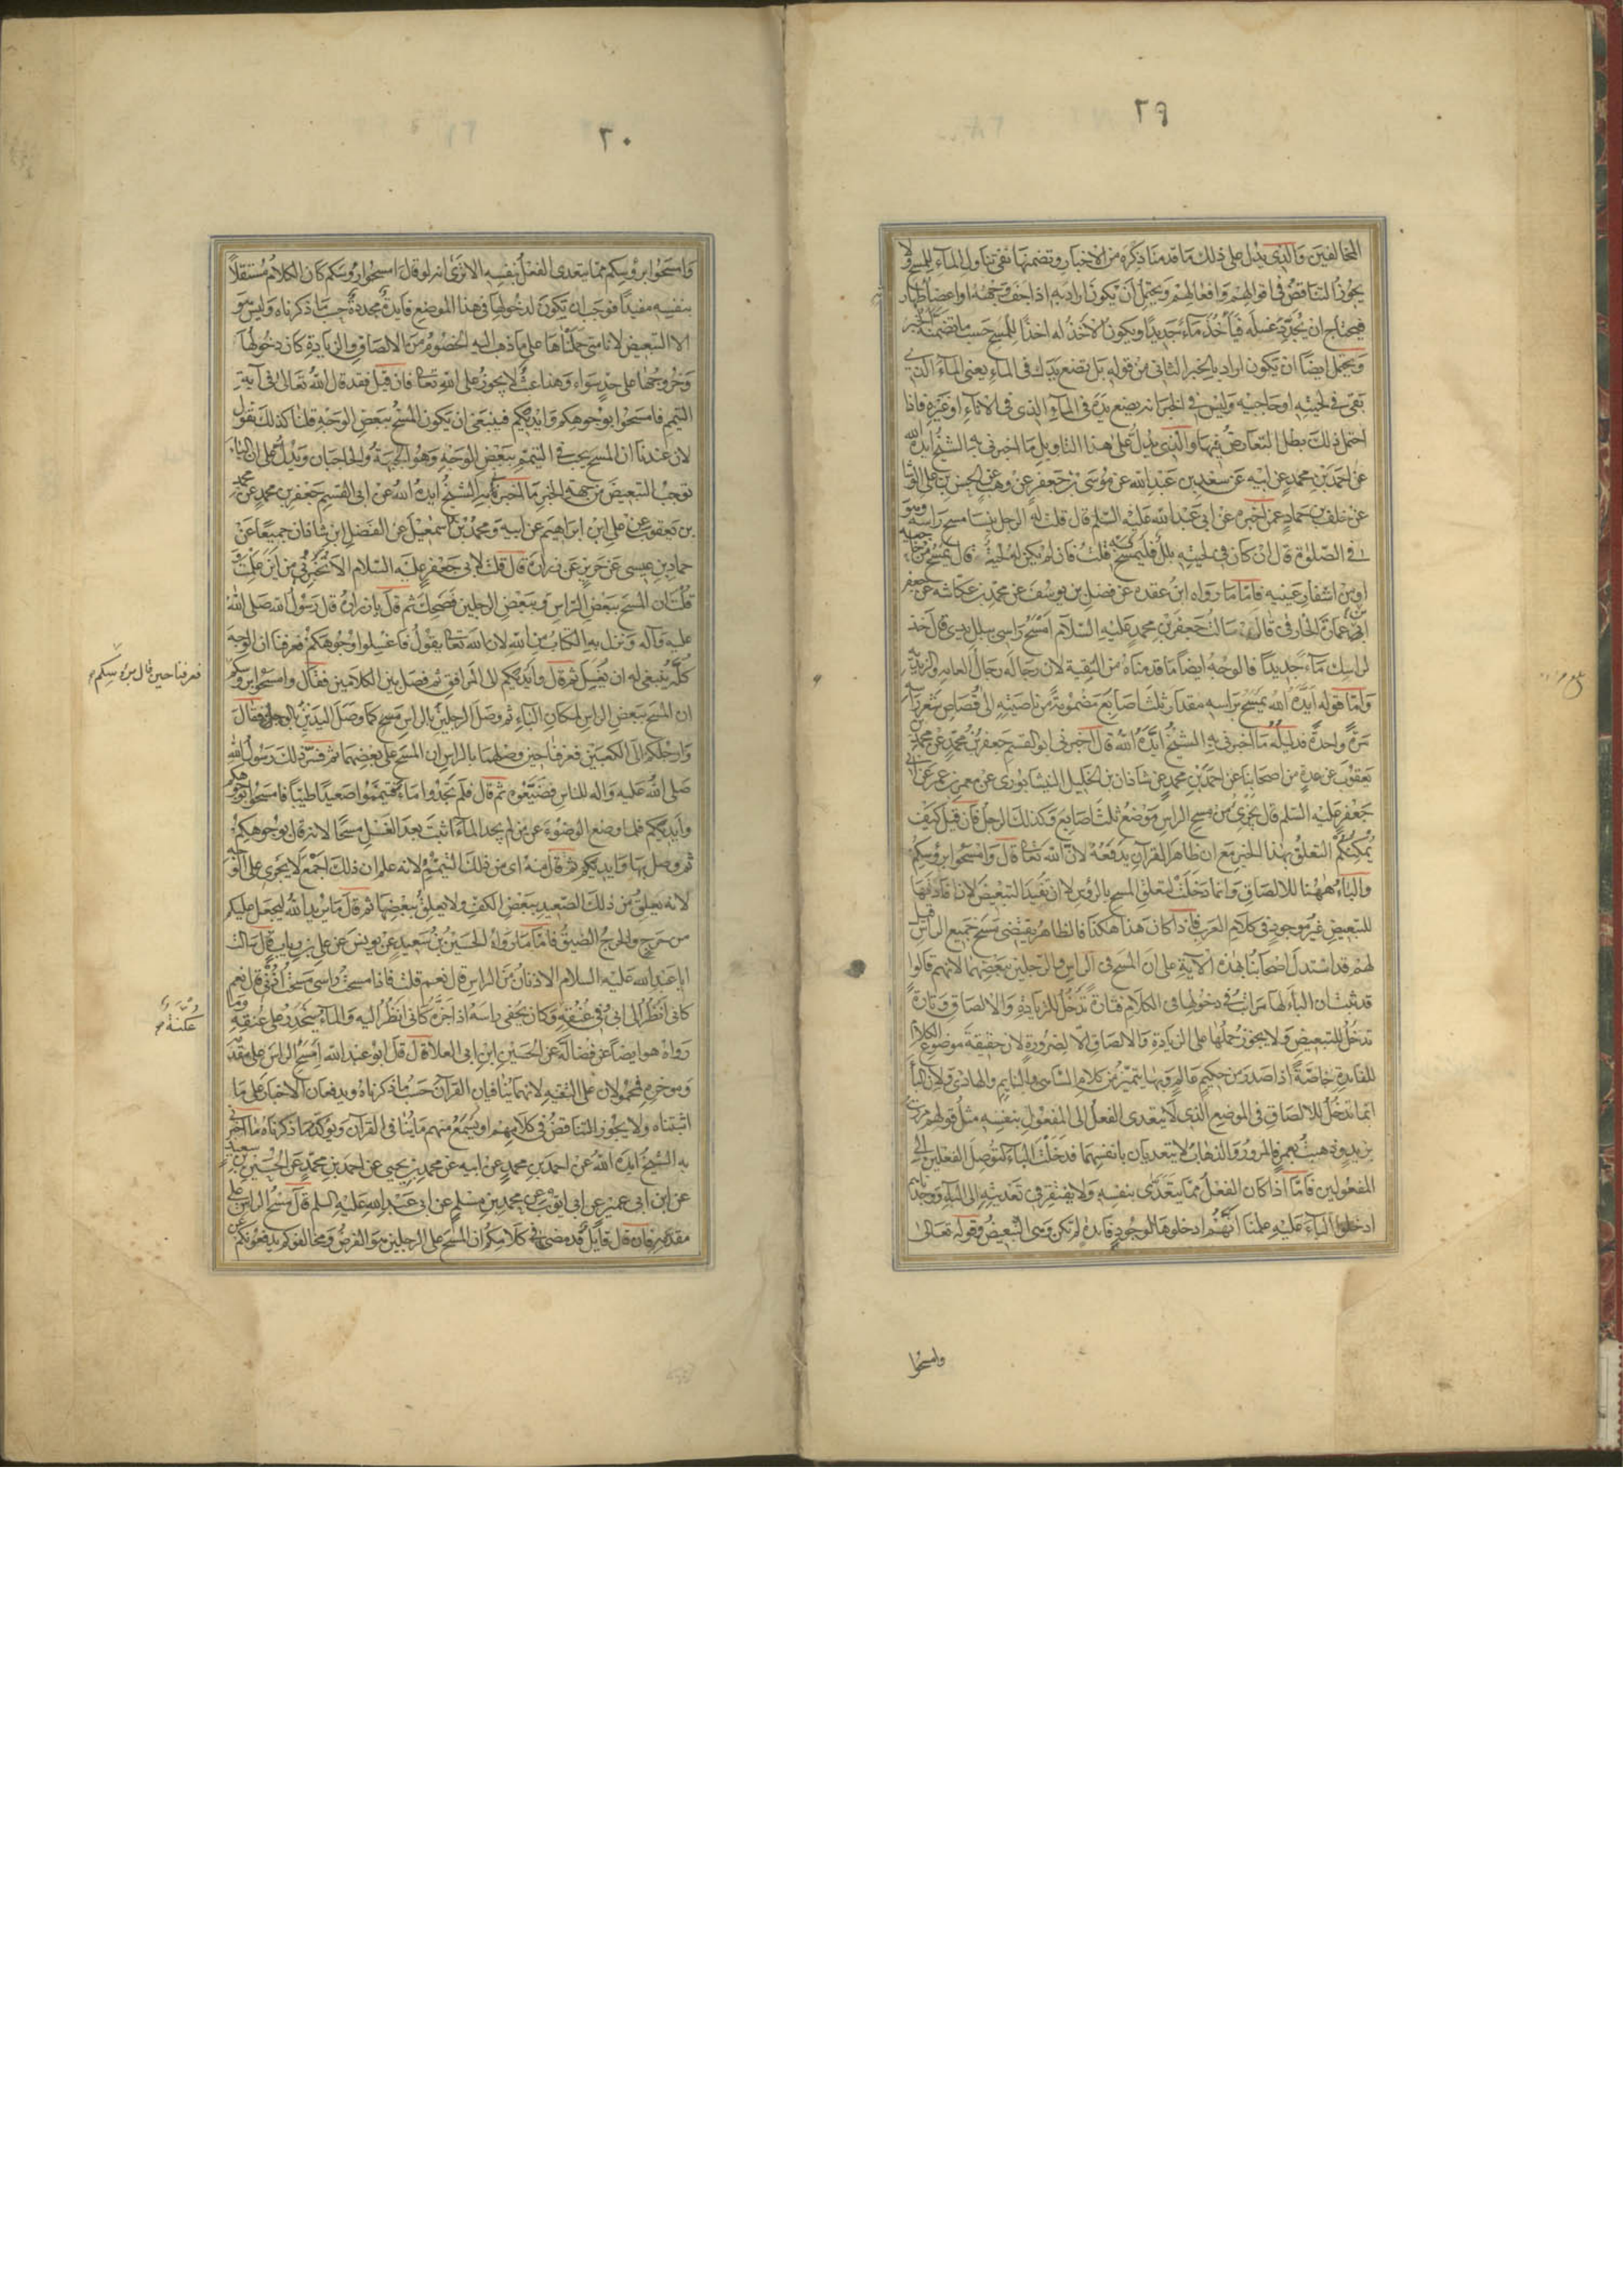 ٢٩
المخالفين والذي يدل على ذلك ما قدمنا ذكره من الاخبار وتضمنها نفي تناول الماء للمسح ولا
يجوز التناقض في اقوالهم وافعالهم ويحتمل ان يكون اراد به اذا جف وجهه او اعضاء طهارته
فيحتاج ان يجدد غسله فيأخذ ماء جديدا ويكون الاخذ له اخذا للمسح حسب ما تضمنه الخبر
ويحتمل ايضا ان يكون اراد بالخبر الثاني من قوله بل تضع يدك في الماء يعني الماء الذي
بقي في لحيته او حاجبيه وليس في الخبر انه يضع يده في الماء الذي في الاناء او غيره فاذا
احتمل ذلك بطل التعارض فيها والذي يدل على هذا التاويل ما اخبرني به الشيخ ايده الله
عن احمد بن محمد عن ابيه عن سعد بن عبد الله عن موسى بن جعفر عن وهب عن الحسن بن علي الوشا
عن خلف بن حماد عمن اخبره عن ابي عبد الله عليه السلم قال قلت له الرجل ينسا مسح راسه وهو
في الصلوة قال ان كان في لحيته بلل فليمسح به قلت فان لم يكن له لحية قال يمسح من حاجبيه
او من اشفار عينيه فاما ما رواه ابن عقدة عن فضل بن يوسف عن محمد بن عكاشة عن جعفر
بن عمارة ابي عمارة الحارثي قال سالت جعفر بن محمد عليه السلام امسح راسي ببلل يدي قال خذ
لراسك ماء جديدا فالوجه ايضا ما قدمناه من التقية لان رجاله رجال العامة والزيدية
واما قوله ايده الله يمسح براسه مقدار ثلث اصابع مضمومة من ناصيته الى قصاص شعر راسه
مرة واحدة فدليله ما اخبرني به الشيخ ايده الله قال اخبرني ابو القسم جعفر بن محمد عن محمد بن
يعقوب عن عدة من اصحابنا عن احمد بن محمد عن شاذان بن الخليل النيشابوري عن معمر بن عمر عن ابي
جعفر عليه السلم قال يجزي من مسح الراس موضع ثلث اصابع وكذلك الرجل فان قيل كيف
يمكنكم التعلق بهذا الخبر مع ان ظاهر القرآن يدفعه لان الله تعالى قال وامسحوا برؤسكم
والباء ههنا للالصاق وانما دخلت لتعلق المسح بالرؤس لا ان تفيد التبعيض لان افادتها
للتبعيض غير موجودة في كلام العرب فاذا كان هذا هكذا فالظاهر يقتضي مسح جميع الراس قيل
لهم قد استدل اصحابنا بهذه الآية على ان المسح في الراس والرجلين ببعضهما لانهم قالوا
قد ثبت ان الباء لها مراتب في دخولها في الكلام فتارة تدخل للزيادة والالصاق وتارة
تدخل للتبعيض ولا يجوز حملها على الزيادة والالصاق الا لضرورة لان حقيقة موضوع الكلام
للفايدة خاصة اذا صدر من حكيم عالم وبها يتميز من كلام الساهي والنايم والهاذي ولان الباء
انما تدخل للالصاق في الموضع الذي لا يتعدى الفعل الى المفعول بنفسه مثل قولهم مررت
بزيد وذهبت بعمرو فالمرور والذهاب لا يتعديان بانفسهما فدخلت الباء لتوصل الفعلين الى
المفعولين فاما اذا كان الفعل مما يتعدى بنفسه ولا يفتقر في تعديته الى الباء ووجدناهم
ادخلوا الباء عليه علمنا انهم ادخلوها لوجود فايدة لم تكن وهي التبعيض وقوله تعالى
وامسحوا
٣٠
وامسحوا برؤسكم مما يتعدى الفعل بنفسه الا ترى انه لو قال امسحوا رؤسكم كان الكلام مستقلا
بنفسه مفيدا فوجب ان يكون لدخولها في هذا الموضع فايدة مجددة حسب ما ذكرناه وليس هو
الا التبعيض لانا متى حملناها على ما ذهب اليه الخصوم من الالصاق والزيادة كان دخولها
وخروجها على حد سواء وهذا عبث لا يجوز على الله تعالى فان قيل فقد قال الله تعالى في آية
التيمم فامسحوا بوجوهكم وايديكم فينبغي ان يكون المسح ببعض الوجه قلنا كذلك نقول
لان عندنا ان المسح يجب في التيمم ببعض الوجه وهو الجبهة والحاجبان ويدل على ان الباء
توجب التبعيض من جهة الخبر ما اخبرنا به الشيخ ايده الله عن ابي القسم جعفر بن محمد عن محمد
بن يعقوب عن علي بن ابراهيم عن ابيه ومحمد بن اسمعيل عن الفضل بن شاذان جميعا عن
حماد بن عيسى عن حريز عن زرارة قال قلت لابي جعفر عليه السلام الا تخبرني من اين علمت
وقلت ان المسح ببعض الراس وببعض الرجلين فضحك ثم قال يا زرارة قال رسول الله صلى الله
عليه وآله ونزل به الكتاب من الله لان الله تعالى يقول فاغسلوا وجوهكم فعرفنا ان الوجه
كله ينبغي له ان يغسل ثم قال وايديكم الى المرافق ثم فصل بين الكلامين فقال وامسحوا برؤسكم
فعرفنا حين قال برؤسكم
ان المسح ببعض الراس لمكان الباء ثم وصل الرجلين بالراس كما وصل اليدين بالوجه فقال
وارجلكم الى الكعبين فعرفنا حين وصلهما بالراس ان المسح على بعضهما ثم فسر ذلك رسول الله
صلى الله عليه واله للناس فضيعوه ثم قال فلم تجدوا ماء فتيمموا صعيدا طيبا فامسحوا بوجوهكم
وايديكم فلما وضع الوضوء عن من لم يجد الماء اثبت بعد الغسل مسحا لانه قال بوجوهكم
ثم وصل بها وايديكم ثم قال منه اي من ذلك التيمم لانه علم ان ذلك اجمع لا يجري على الوجه
لانه يعلق من ذلك الصعيد ببعض الكف ولا يعلق ببعضها ثم قال ما يريد الله ليجعل عليكم
من حرج والحرج الضيق فاما ما رواه الحسين بن سعيد عن يونس عن علي بن رياب قال سالت
ابا عبد الله عليه السلام الاذنان من الراس قال نعم قلت فاذا مسحت راسي مسحت اذني قال نعم
كاني انظر الى ابي في عنقه وكان يحفي راسه اذا جزه كاني انظر اليه والماء ينحدر على عنقه وما
عكنة
رواه هو ايضا عن فضالة عن الحسين بن ابي العلا قال قال ابو عبد الله امسح الراس على مقدمه
وموخره فمحمولان على التقية لانهما ينافيان القرآن حسب ما ذكرناه ويدفعان الاخبار على ما
اثبتناه ولا يجوز التناقض في كلامهم او يسمع منهم ما ينافي القرآن ويوكد ما ذكرناه ما اخبرني
به الشيخ ايده الله عن احمد بن محمد عن ابيه عن محمد بن يحيى عن احمد بن محمد عن الحسين بن سعيد
عن ابن ابي عمير عن ابي ايوب عن محمد بن مسلم عن ابي عبد الله عليه السلم قال مسح الراس على
مقدمه فان قال قايل قد مضى في كلامكم ان المسح على الرجلين هو الفرض ومخالفوكم يدفعونكم عن